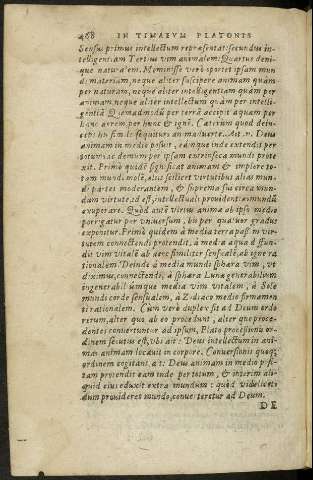 468 IN TIMAEVM PLATONIS
Sensus primus intellectum repræsentat: secundus in-
telligentiam Tertius vim animalem: Quartus deni-
que naturalem. Meminisse verò oportet ipsam mun
di materiam, neque aliter suscipere animam quàm
per naturam, neque aliter intelligentiam quàm per
animam neque aliter intellectum quàm per intelli-
gentiā Quēadmodū per terrā accipit aquam per
hanc aërem per hunc & ignē. Cæterùm quod dein-
ceps sequitur animaduerte. Ait
animam in medio posuit, eamque inde extendi per
totum: ac demum per ipsam extrinseca mundi prote
xit. Primò quidē significat animam & implere to-
tam mundi molē, alijs scilicet virtutibus alias mun-
di partes moderantem, & suprema sua circa mun-
dum virtute, id est, intellectuali prouidentia mundū
exuperare. Quòd autē virtus animæ ab ipso medio
porrigatur per vniuersum, bis per quatuor gradus
exponitur. Primò quidem à media terra passim vir-
tutem connectendi protendit, à media aqua diffun-
dit vim vitalē ab aere similiter sensualē, ab igne ra
tionalem. Deinde à media mundi sphæra vim, vt
diximus, connectendi, à sphæra Lunæ generabilium
ingenerabiliumque media vim vitalem, à Sole
mundi corde sensualem, à Zodiaco medio firmamen
ti rationalem. Cùm verò duplex sit ad Deum ordo
rerum, alter quo ab eo procedunt, alter quo proce-
dentes conuertuntur ad ipsum, Plato processionis or-
dinem secutus est, vbi ait: Deus intellectum in ani-
mas animam locauit in corpore. Conuersionis quoq;
ordinem cogitans, ait: Deus animam in medio posi-
tam protendit eam inde per totum, & interim ali-
quid eius eduxit extra mundum: quòd videlicet
dum prouideret mundo, conuerteretur ad Deum.
DE